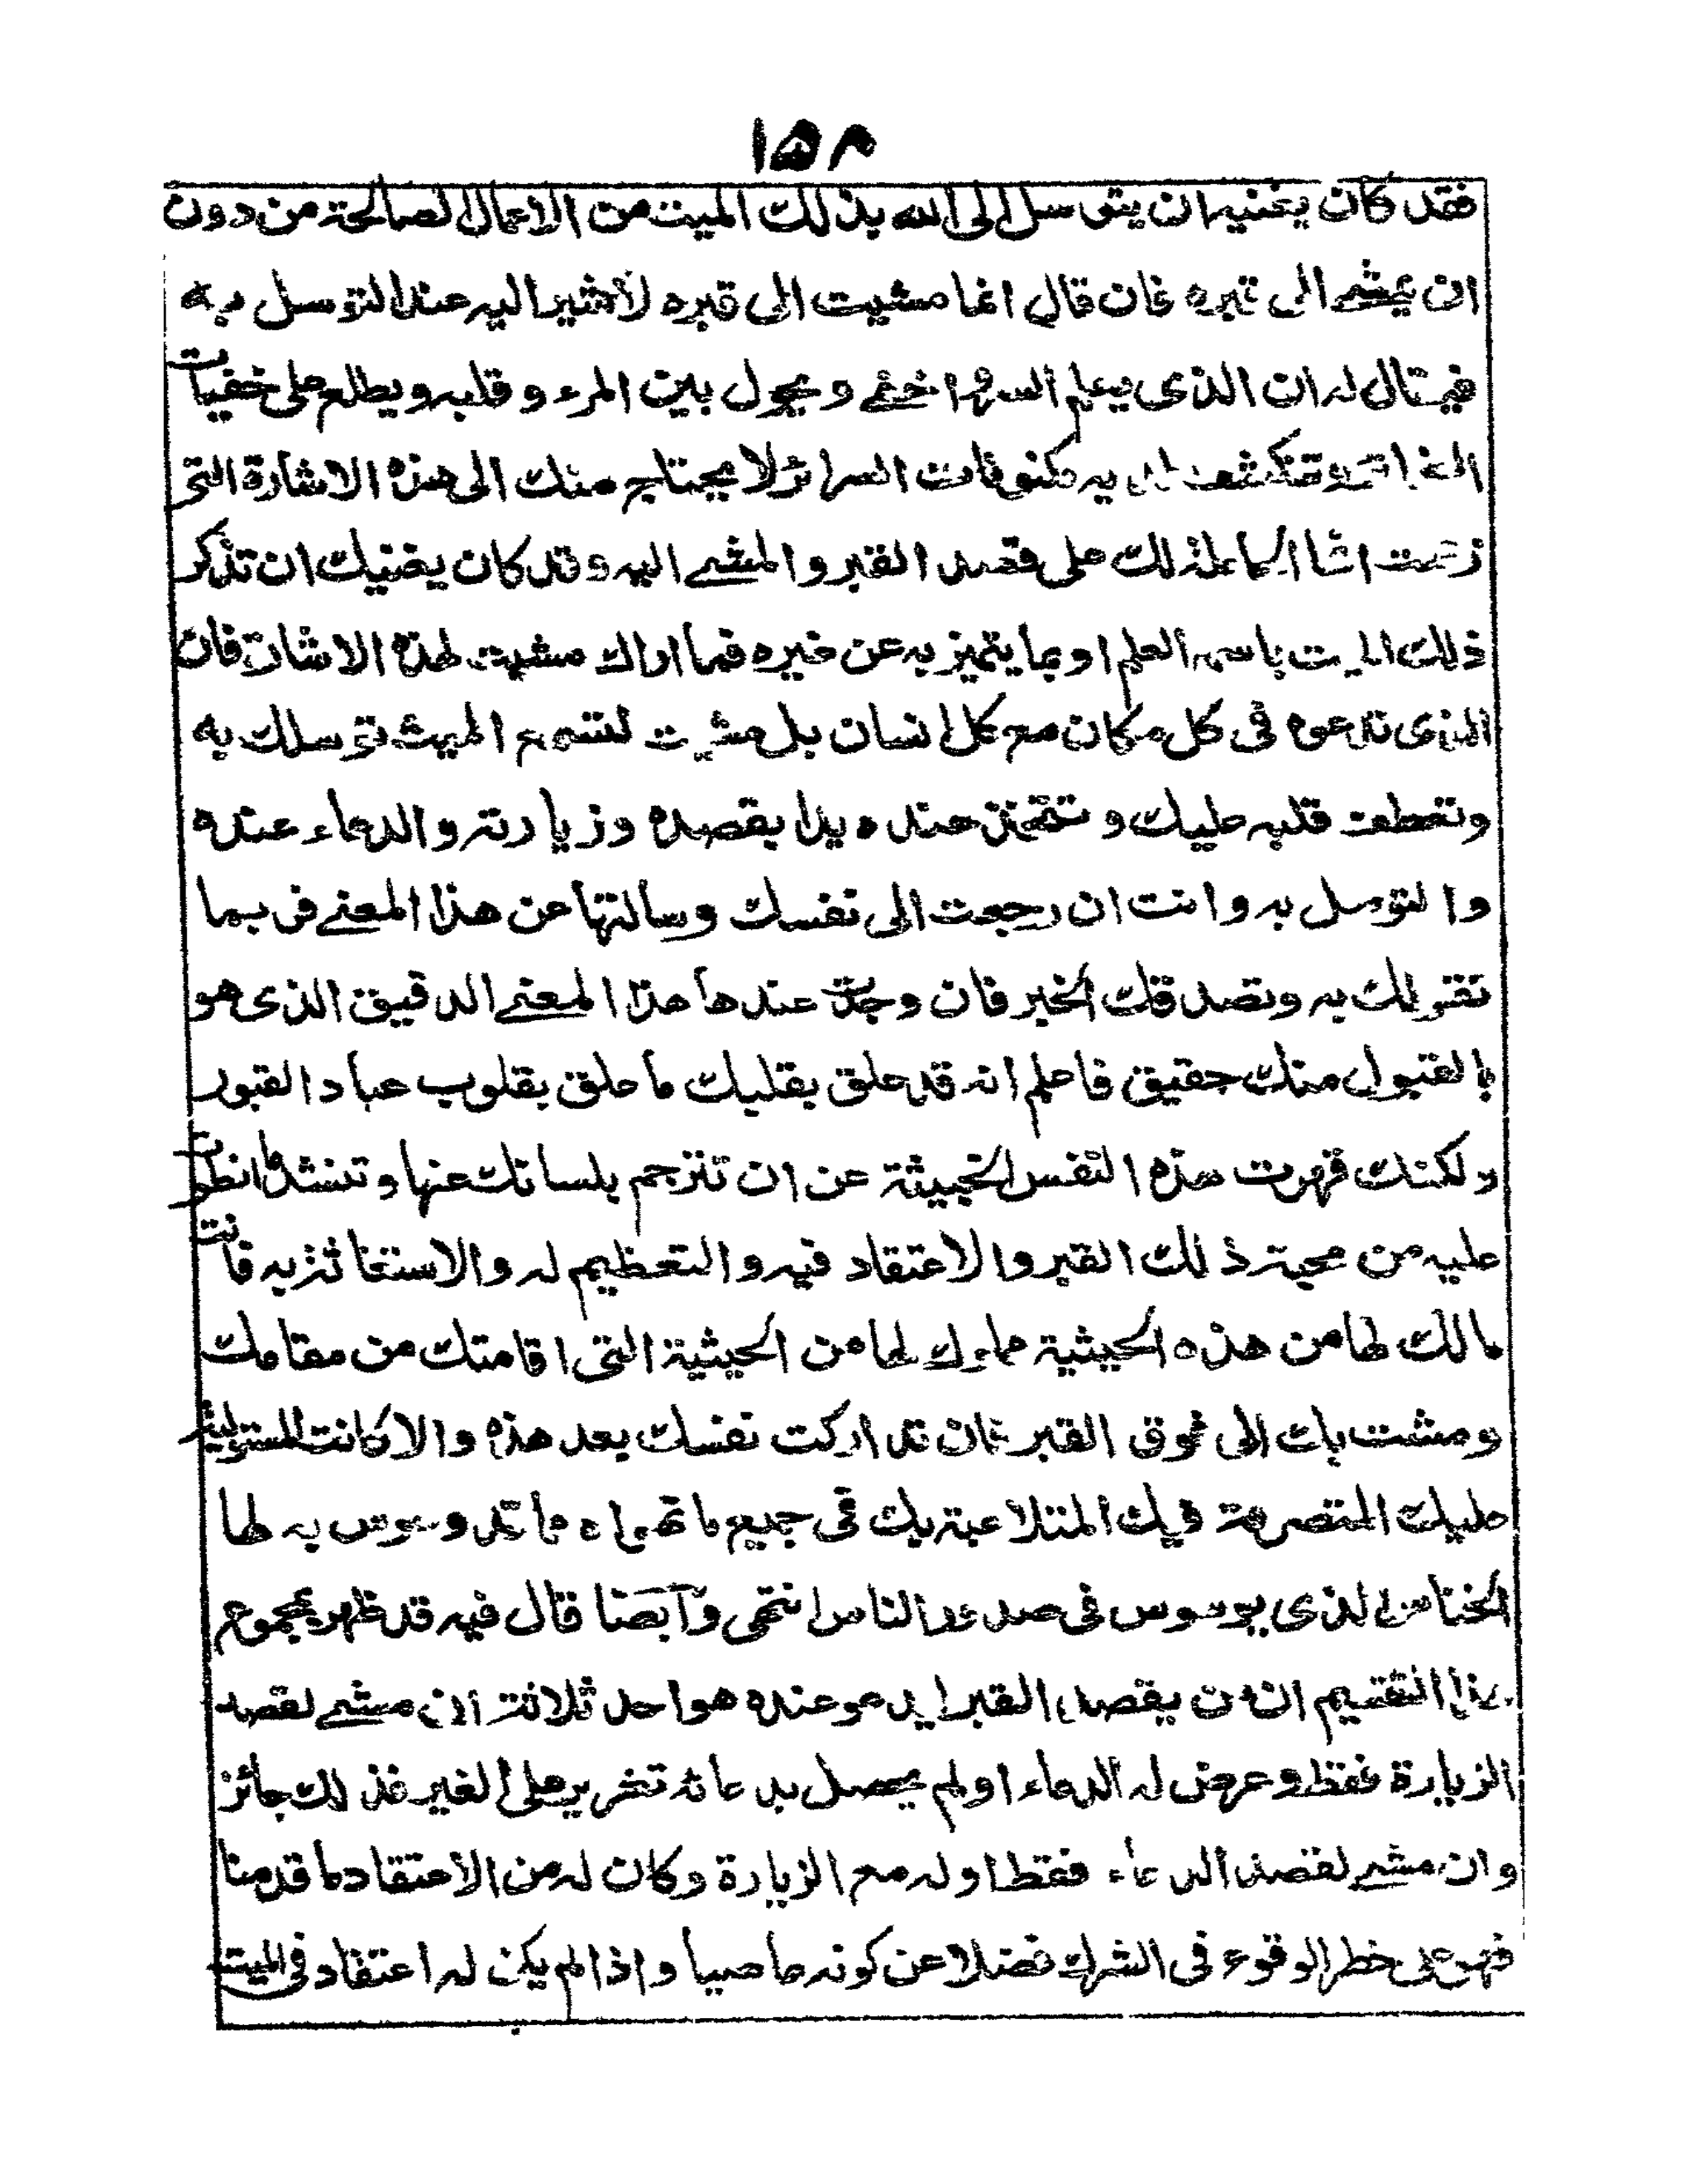 ١٥٨
فقد كان يغنيه ان يتوسل الى الله بذلك الميت من الاعمال الصالحة من دون
ان يمشى الى قبره فان قال انما مشيت الى قبره لأشير اليه عند التوسل به
فيقال له ان الذى يعلم السر واخفى و يحول بين المرء و قلبه ويطلع على خفيات
وتنكشف لديه مكنونات السرائر لا يحتاج منك الى هذه الاشارة التى
زعمت انها الحاملة لك على قصد القبر والمشى اليه وقد كان يغنيك ان تذكر
ذلك الميت باسمه العلم او بما يتميز به عن غيره فما اراك مشيت لهذه الاشارة فان
الذى تدعوه فى كل مكان مع كل انسان بل مشيت لتسمع الميث توسلك به
وتعطف قلبه عليك و تتخذ عنده يدا بقصده وزيارته والدعاء عنده
والتوسل به وانت ان رجعت الى نفسك وسالتها عن هذا المعنى فربما
تقر لك به وتصدقك الخبر فان وجدت عندها هذا المعنى الدقيق الذى هو
بالقبول منك حقيق فاعلم انه قد علق بقلبك ما علق بقلوب عباد القبور
ولكنك قهرت هذه النفس الخبيثة عن ان تترجم بلسانك عنها و تنشد ما انطوت
عليه من محبة ذلك القبر والاعتقاد فيه والتعظيم له والاستغاثة به فانت
مالك لها من هذه الحيثية مملوك لها من الحيثية التى اقامتك من مقامك
ومشت بك الى فوق القبر فان تداركت نفسك بعد هذه والا كانت المستولية
عليك المتصرفة فيك المتلاعبة بك فى جميع ما تهواه مما قد وسوس به لها
الخناس الذى يوسوس فى صدور الناس انتهى وآيضا قال فيه قد ظهر بمجموع
هذا التقسيم ان من يقصد القبر ليدعو عنده هو احد ثلاثة ان مشى لقصد
الزيارة فقط و عرض له الدعاء او لم يحصل بدعائه تغرير على الغير فذلك جائز
وان مشى لقصد الدعاء فقط او له مع الزيارة وكان له من الاعتقاد ما قدمنا
فهو على خطر الوقوع فى الشرك فضلا عن كونه عاصيا واذا لم يكن له اعتقاد فى الميت